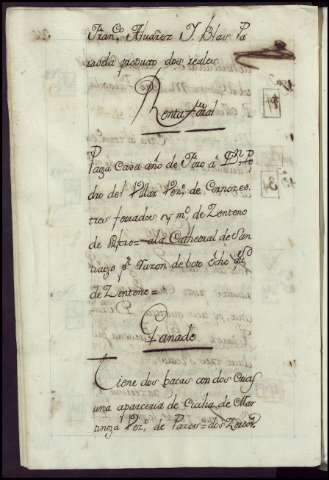 Fran.co Alvarez Y Blas Pa
rada quatro dos reales
Renta foral
Paga cada año de foro a D.n Pe
dro del Villar Vez.o de
tres ferrados y m.o de Zenteno
de = a la Cathedral de San
tiago p.r razon de boto ocho
de Zenteno =
Ganado
Tiene dos bacas con dos Crias
una aparceria de Cicilia de Mar
tinez Vez.a de = dos